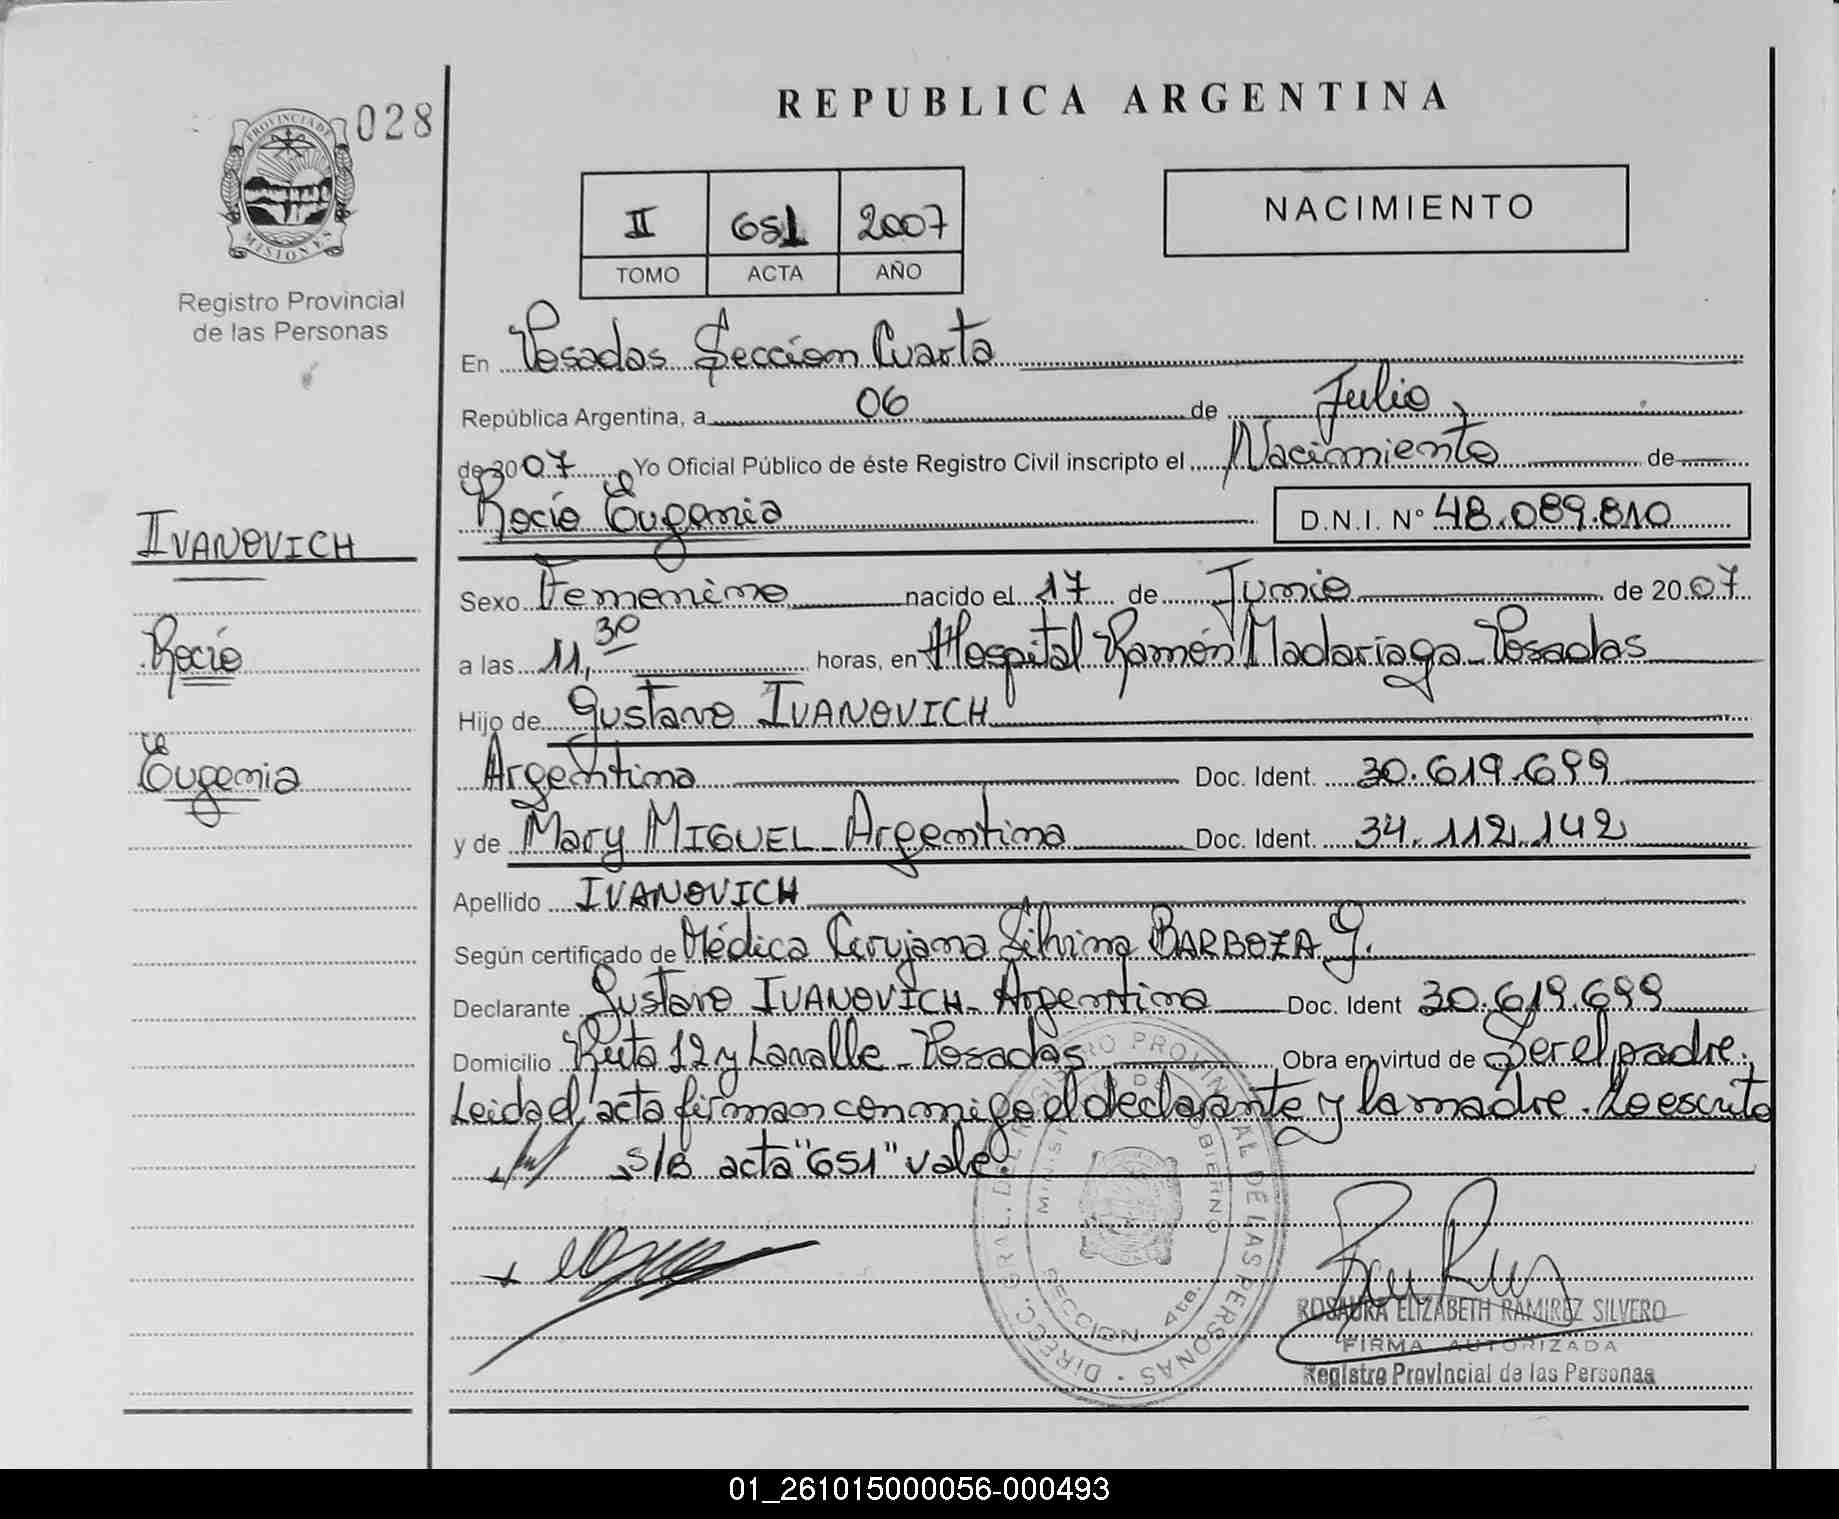 028
PROVINCIA DE
MISIONES
Registro Provincial
de las Personas
IVANOVICH
Rocío
Eugenia
REPUBLICA ARGENTINA
II 651 2007
TOMO ACTA AÑO
NACIMIENTO
En Posadas Sección Cuarta
República Argentina, a 06 de Julio
de 2007 Yo Oficial Público de éste Registro Civil inscripto el Nacimiento de
Rocío Eugenia D.N.I. N° 48.089.810
Sexo Femenino nacido el 17 de Junio de 2007
a las 11,30 horas, en Hospital Ramón Madariaga - Posadas
Hijo de Gustavo IVANOVICH
Argentina Doc. Ident. 30.619.699
y de Mary MIGUEL - Argentina Doc. Ident. 34.112.142
Apellido IVANOVICH
Según certificado de Médica Cirujana Silvina BARBOZA G.
Declarante Gustavo IVANOVICH - Argentina Doc. Ident 30.619.699
Domicilio Ruta 12 y Lavalle - Posadas Obra en virtud de Ser el padre.
Leida el acta firman conmigo el declarante y la madre. Lo escrito
s/B acta "651" vale.
DIRECC. GRAL. DEL REGISTRO PROVINCIAL DE LAS PERSONAS
MINISTERIO DE GOBIERNO
SECCION 4ta.
ROSAURA ELIZABETH RAMIREZ SILVERO
FIRMA AUTORIZADA
Registro Provincial de las Personas
01_261015000056-000493